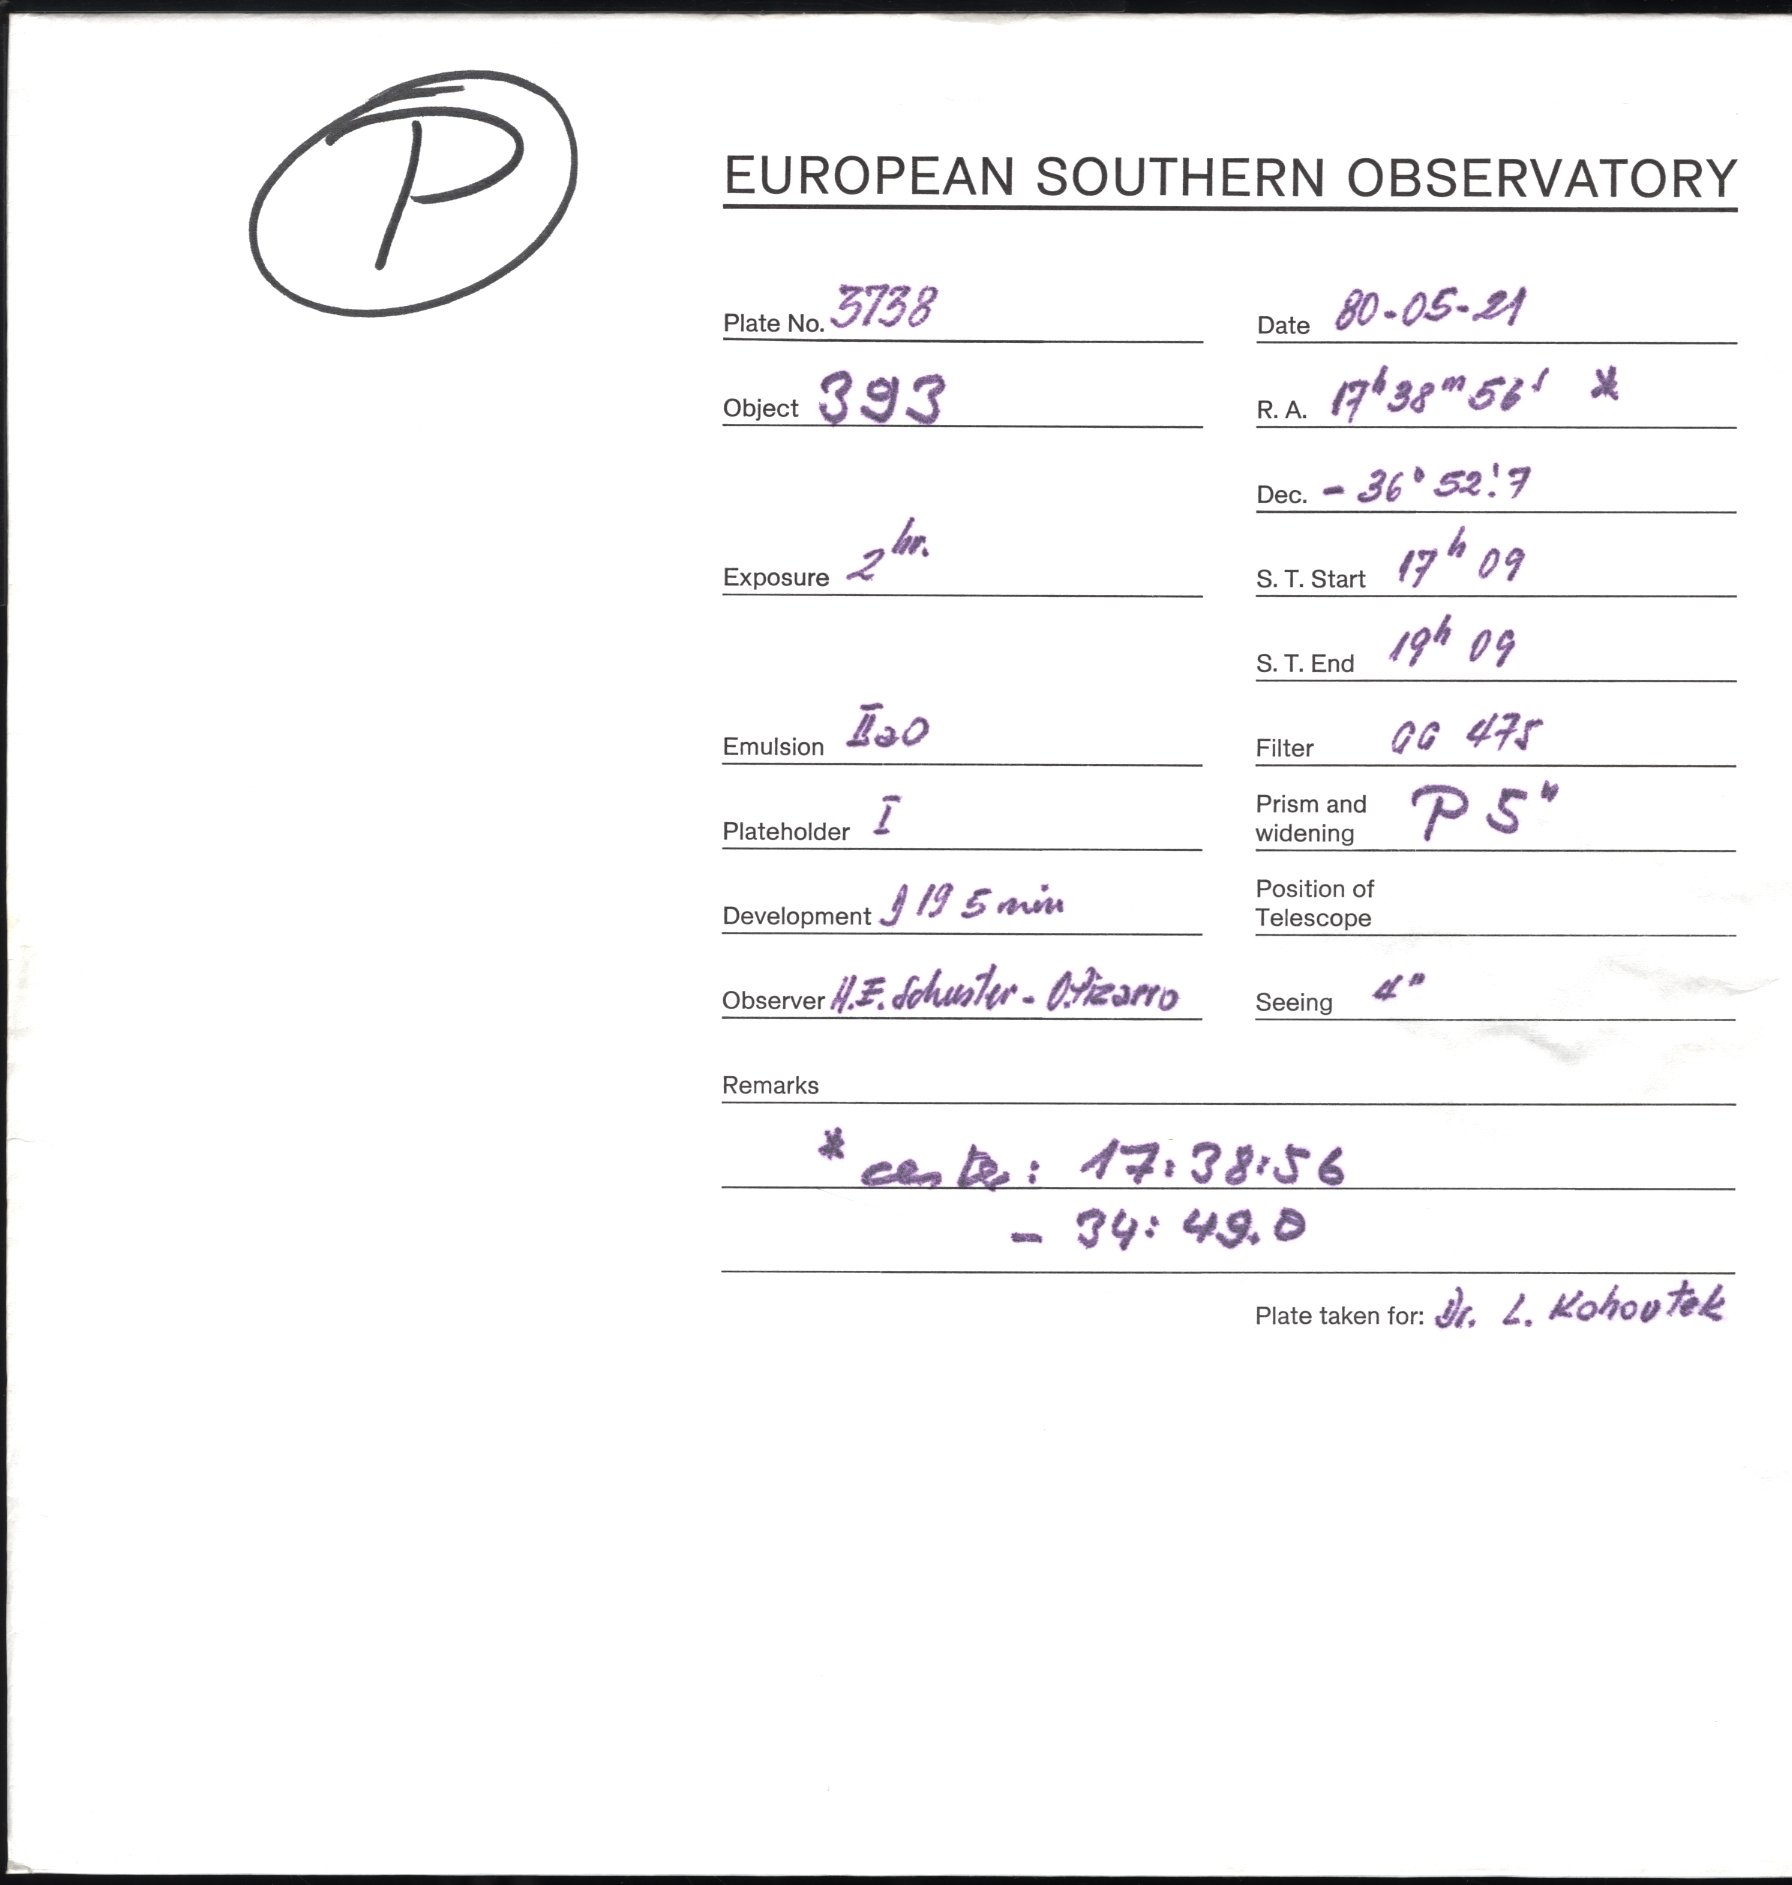 P
EUROPEAN SOUTHERN OBSERVATORY
Plate No. 3738
Date 80-05-21
Object 393
R. A. 17h 38m 56s *
Dec. - 36° 52!7
Exposure 2 hr.
S. T. Start 17h 09
S. T. End 19h 09
Emulsion IIaO
Filter GG 475
Plateholder I
Prism and widening P 5"
Development D 19 5 min
Position of Telescope
Observer H.E. Schuster - O.Pizarro
Seeing 4"
Remarks
* center: 17:38:56
- 34: 49.0
Plate taken for: Dr. L. Kohoutek